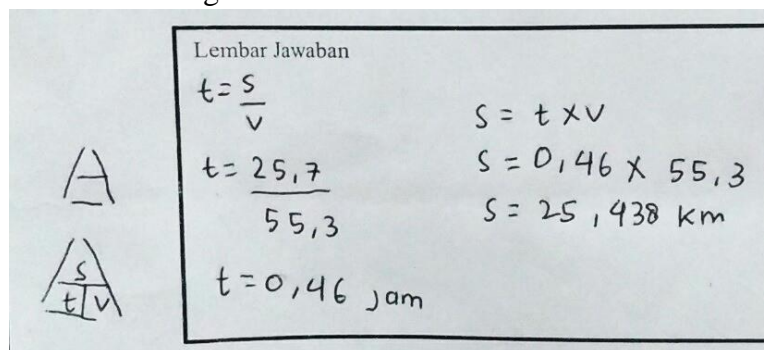 Lembar Jawaban
t = s
v
t = 25,7
55,3
t = 0,46 jam
s = t x v
s = 0,46 x 55,3
s = 25,438 km
A
s
t v